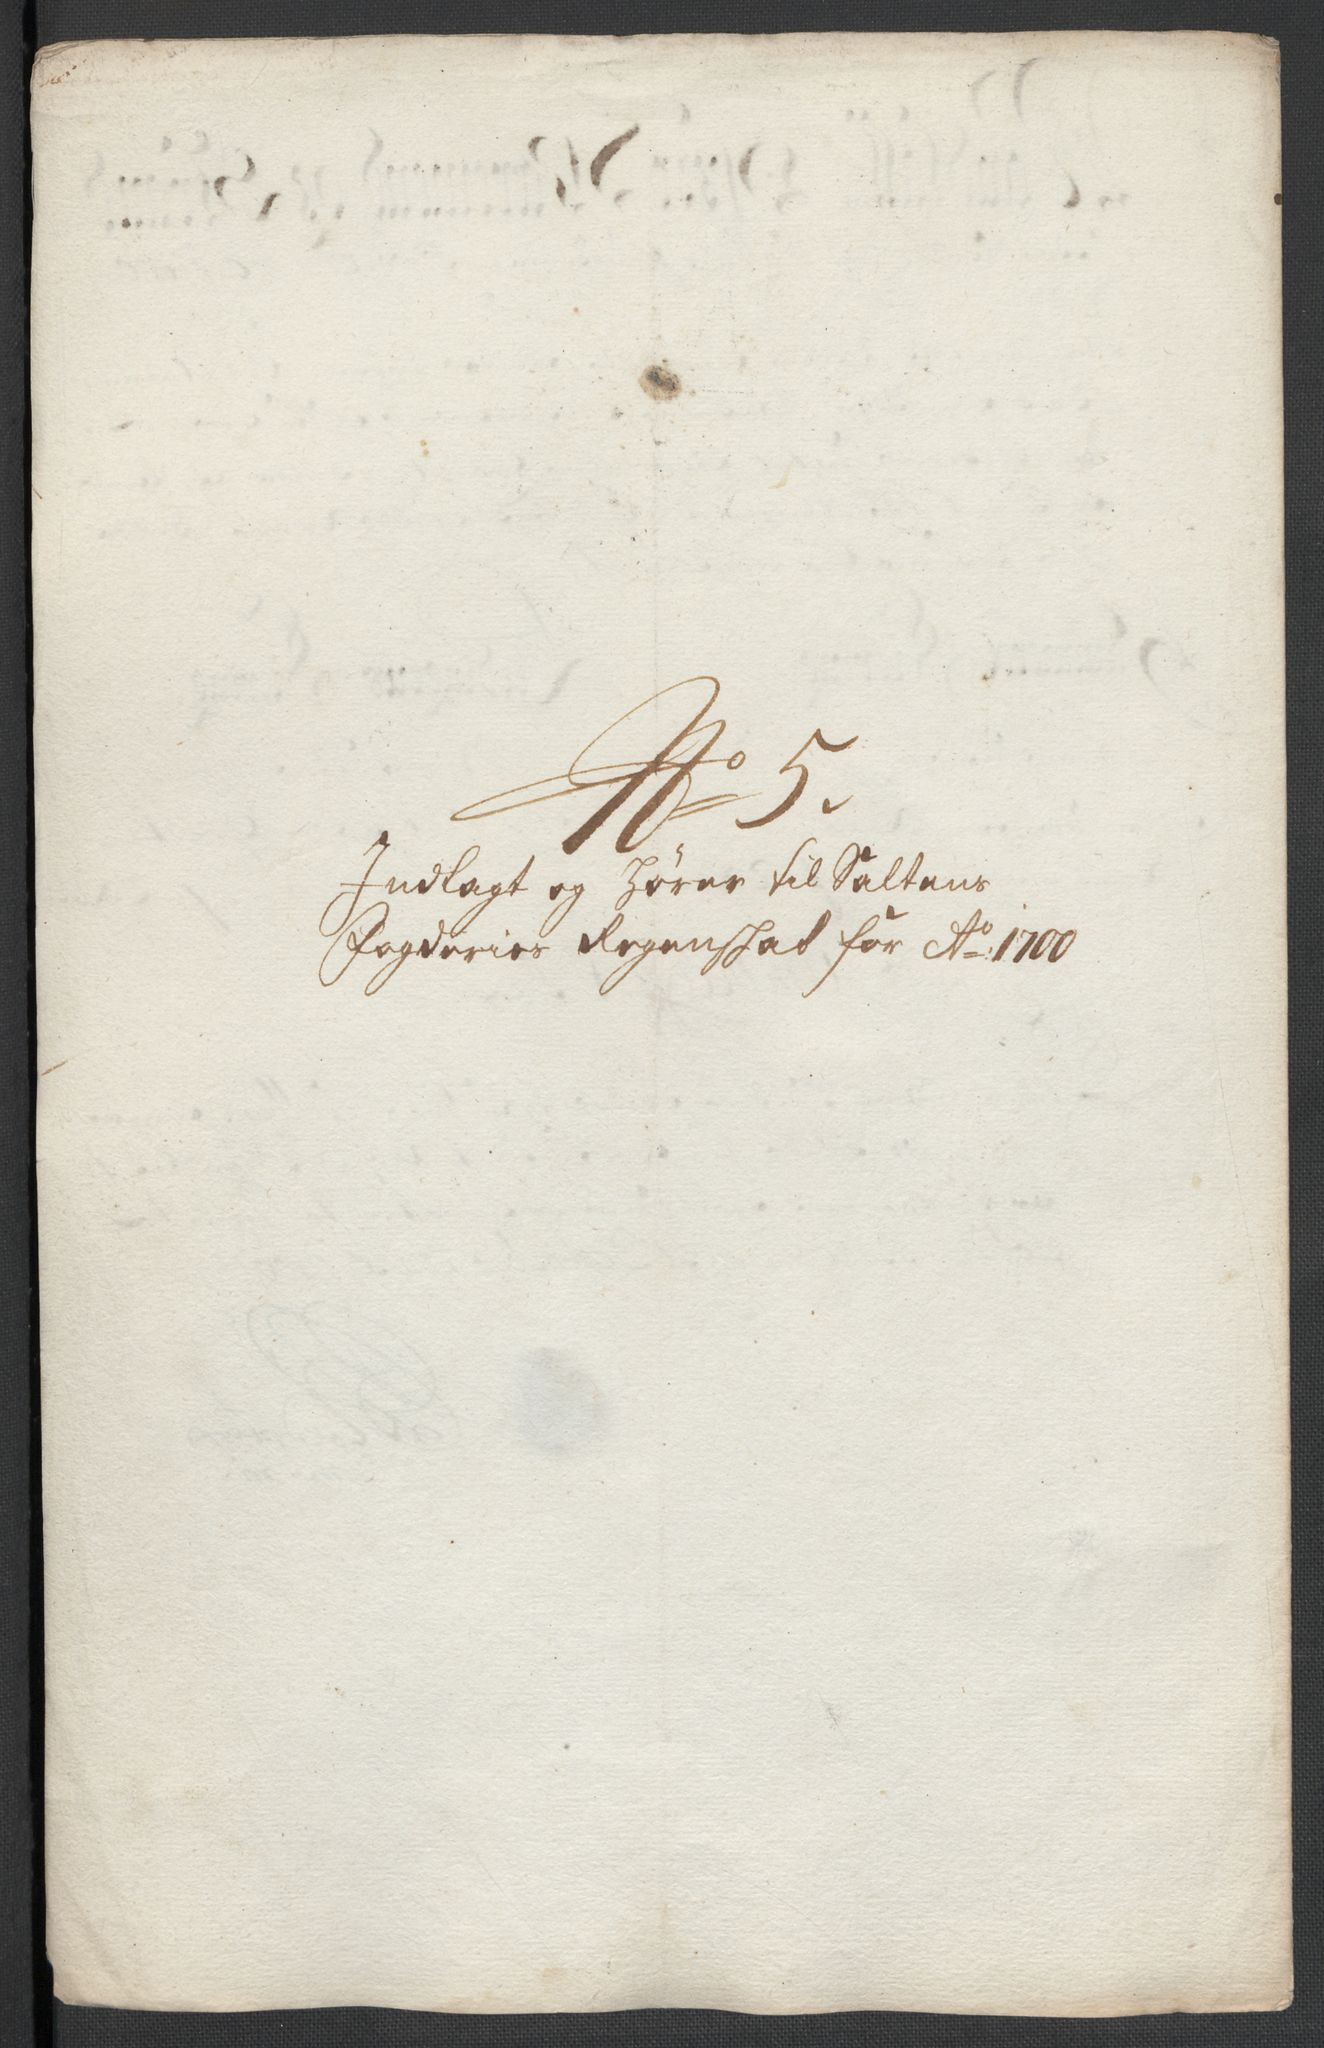 No 5.
Indlagt og hörer til Saltens
Fogderies Regenskab for Ao 1700